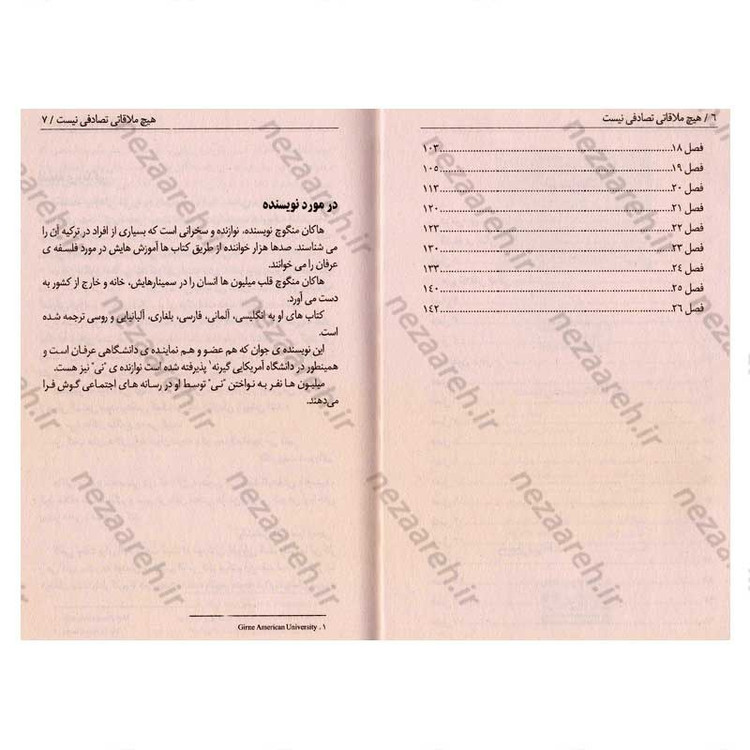 ۶ / هیچ ملاقاتی تصادفی نیست
فصل ۱۸................................................................۱۰۳
فصل ۱۹................................................................۱۰۵
فصل ۲۰................................................................۱۱۳
فصل ۲۱................................................................۱۲۰
فصل ۲۲................................................................۱۲۳
فصل ۲۳................................................................۱۳۰
فصل ۲۴................................................................۱۳۳
فصل ۲۵................................................................۱۴۰
فصل ۲۶................................................................۱۴۲
هیچ ملاقاتی تصادفی نیست / ۷
در مورد نویسنده
هاکان منگوچ نویسنده، نوازنده و سخرانی است که بسیاری از افراد در ترکیه آن را
می شناسند. صدها هزار خواننده از طریق کتاب ها آموزش هایش در مورد فلسفه ی
عرفان را می خوانند.
هاکان منگوچ قلب میلیون ها انسان را در سمینارهایش، خانه و خارج از کشور به
دست می آورد.
کتاب های او به انگلیسی، آلمانی، فارسی، بلغاری، آلبانیایی و روسی ترجمه شده
است.
این نویسنده ی جوان که هم عضو و هم نماینده ی دانشگاهی عرفان است و
همینطور در دانشگاه آمریکایی گیرنه۱ پذیرفته شده است نوازنده ی "نی" نیز هست.
میلیون ها نفر به نواختن "نی" توسط او در رسانه های اجتماعی گوش فرا
می‌دهند.
۱ . Girne American University
nezaareh.ir